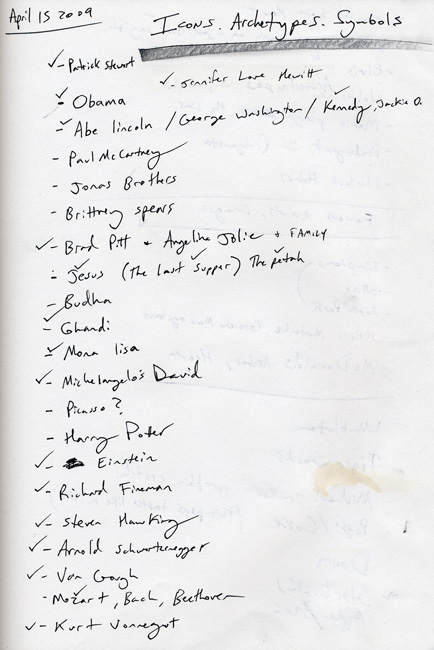 April 15 2009
Icons. Archetypes. Symbols
✓ - Patrick stewart
✓ - Jennifer Love Hewitt
✓ - Obama
✓ - Abe lincoln / George Washington / Kennedy, Jackie O.
- Paul McCartney
- Jonas Brothers
- Brittney spears
✓ - Brad Pitt + Angelina Jolie + FAMILY
- Jesus (The last supper) The petah
- Budha
✓ - Ghandi
✓ - Mona lisa
✓ - Michelangelo's David
- Picasso?
- Harry Potter
✓ - Einstein
✓ - Richard Fineman
✓ - Steven Hawking
✓ - Arnold schwartzenegger
✓ - Van Gough
- Mozart, Bach, Beethoven
✓ - Kurt Vonnegut